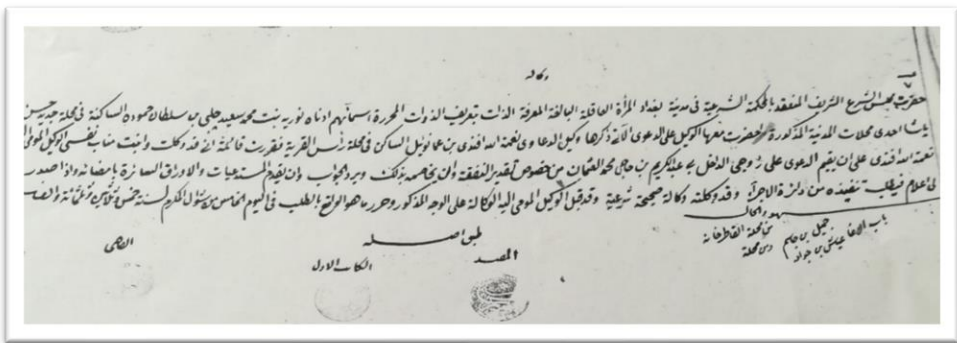 وكاله
حضرت مجلس الشرع الشريف المنعقد بالمحكمة الشرعية في مدينة بغداد المرأة العاقلة البالغة المعرفة الذات بتعريف الذوات المحررة اسمائهم ادناه نوريه بنت محمد سعيد چلبي بن سلطان حموده الساكنة في محلة جديد حسن
باشا احدى محلات المدينة المذكورة واحضرت معها الوكيل على الدعوى الآتة ذكرها وكيل الدعاوى نعمة الله افندي بن عمانوئيل الساكن في محلة رأس القرية فقررت قائلة اني قد وكلت وانبت مناب نفسي الوكيل المومى
نعمة الله افندي على ان يقيم الدعوى على زوجي الداخل بي عبد الكريم بن حاجي محمد العثمان من خصوص تقدير النفقة وان يخاصمه بذلك ويرد الجواب وان يقدم المستدعيات والاوراق السائرة بامضائه واذا صدر
لي اعلام فيطلب تنفيذه من دائرة الاجراء وقد وكلته وكالة صحيحة شرعية وقد قبل الوكيل المومى اليه الوكالة على الوجه المذكور وحرر ما هو الواقع بالطلب في اليوم الخامس من شوال المكرم لسنة خمس وثلاثمائة والف
شهود الحال
جميل بن جاسم من محلة القاطرخانة
باب الاغا عباس بن جواد ومن محلة
طبق اصله
المقيد
الكاتب الاول
القاضي